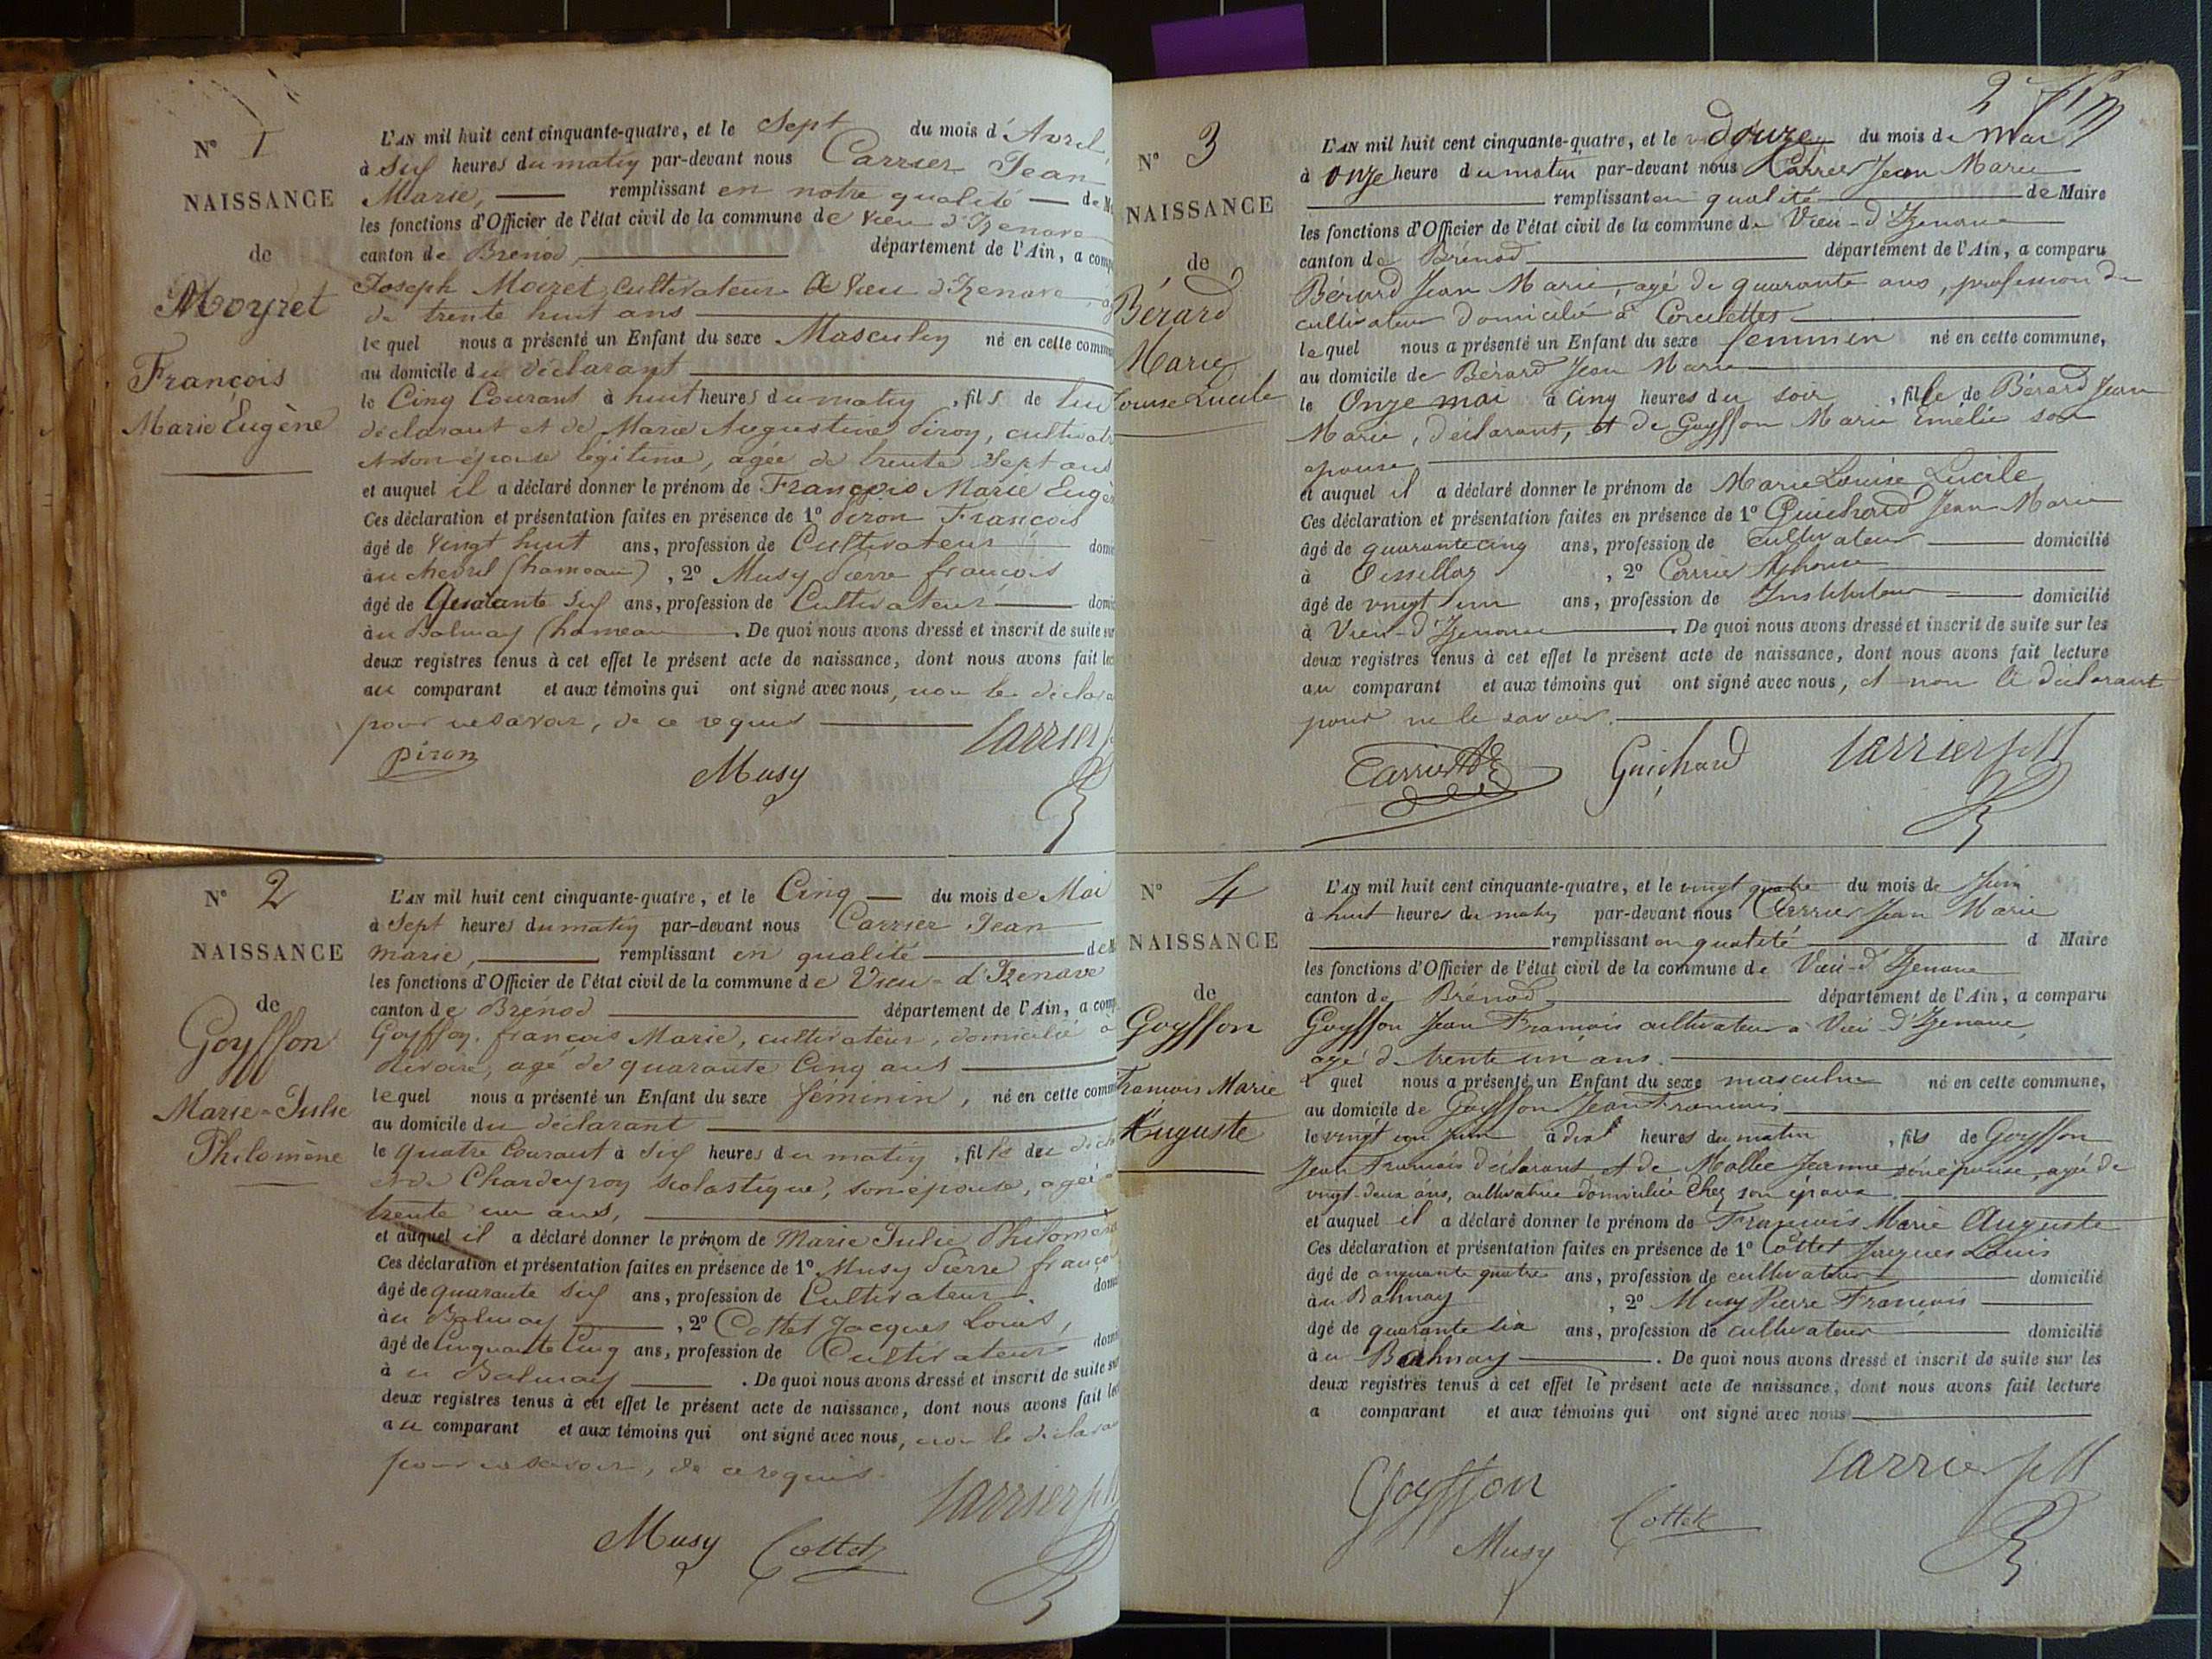 N° 1
NAISSANCE
de
Moyret
François
Marie Eugène
L'AN mil huit cent cinquante-quatre, et le Sept du mois d'Avril,
à six heures du matin par-devant nous Carrier Jean
Marie, remplissant en notre qualité de
les fonctions d'Officier de l'état civil de la commune de Vieu d'Izenave
canton de Brénod, département de l'Ain, a
Joseph Moiret, cultivateur à Vieu d'Izenave,
de trente huit ans
lequel nous a présenté un Enfant du sexe Masculin né en cette
au domicile du déclarant
le Cinq Courant à huit heures du matin, fils de lui
déclarant et de Marie Augustine Piron,
son épouse légitime, agée de trente sept ans
et auquel il a déclaré donner le prénom de François Marie
Ces déclaration et présentation faites en présence de 1° Piron François
âgé de Vingt huit ans, profession de Cultivateur
au Chevril (hameau), 2° Musy Pierre françois
âgé de Quarante six ans, profession de Cultivateur
au Balmay (hameau. De quoi nous avons dressé et inscrit de suite
deux registres tenus à cet effet le présent acte de naissance, dont nous avons fait
au comparant et aux témoins qui ont signé avec nous, non le
pour ne savoir, de ce requis
Piron Musy Carrier
N° 2
NAISSANCE
de
Goyffon
Marie-Julie
Philomène
L'AN mil huit cent cinquante-quatre, et le Cinq du mois de Mai
à Sept heures du matin par-devant nous Carrier Jean
Marie, remplissant en qualité de
les fonctions d'Officier de l'état civil de la commune de Vieu-d'Izenave
canton de Brénod département de l'Ain, a
Goyffon, françois Marie, cultivateur, domicilié à
agé de quarante Cinq ans
lequel nous a présenté un Enfant du sexe féminin, né en cette
au domicile du déclarant
le quatre Courant à six heures du matin, fille du
et de Chardeyron Scolastique, son épouse, agée
trente un ans,
et auquel il a déclaré donner le prénom de Marie Julie
Ces déclaration et présentation faites en présence de 1° Musy Pierre
âgé de quarante six ans, profession de Cultivateur.
au Balmay, 2° Cottet Jacques Louis,
âgé de Cinquante Cinq ans, profession de Cultivateur
à u Balmay. De quoi nous avons dressé et inscrit de suite
deux registres tenus à cet effet le présent acte de naissance, dont nous avons fait
au comparant et aux témoins qui ont signé avec nous, non le
pour ne savoir, de ce requis.
Musy Cottet Carrier
2
N° 3
NAISSANCE
de
Bérard
Marie
Louise Lucile
L'AN mil huit cent cinquante-quatre, et le douze du mois de Mai
à onze heure du matin par-devant nous Carrier Jean Marie
remplissant en qualité de Maire
les fonctions d'Officier de l'état civil de la commune de Vieu-d'Izenave
canton de Brénod département de l'Ain, a comparu
Bérard Jean Marie, agé de quarante ans, profession de
cultivateur domicilié à Corcelettes
lequel nous a présenté un Enfant du sexe féminin né en cette commune,
au domicile de Bérard Jean Marie
le Onze mai à cinq heures du soir, fille de Bérard Jean
Marie, déclarant, et de Goyffon Marie Emélie son
épouse
et auquel il a déclaré donner le prénom de Marie Louise Lucile
Ces déclaration et présentation faites en présence de 1° Guichard Jean Marie
âgé de quarante cinq ans, profession de cultivateur domicilié
à, 2° Carrier Alphonse
âgé de vingt un ans, profession de Instituteur domicilié
à Vieu-d'Izenave. De quoi nous avons dressé et inscrit de suite sur les
deux registres tenus à cet effet le présent acte de naissance, dont nous avons fait lecture
au comparant et aux témoins qui ont signé avec nous, et non le déclarant
pour ne le savoir.
Carrier Guichard Carrier
N° 4
NAISSANCE
de
Goyffon
François Marie
Auguste
L'AN mil huit cent cinquante-quatre, et le vingt quatre du mois de Juin
à huit heures du matin par-devant nous Carrier Jean Marie
remplissant en qualité d Maire
les fonctions d'Officier de l'état civil de la commune de Vieu-d'Izenave
canton de Brénod département de l'Ain, a comparu
Goyffon Jean François cultivateur à Vieu-d'Izenave,
agé de trente un ans.
l quel nous a présenté un Enfant du sexe masculin né en cette commune,
au domicile de Goyffon Jean François
le vingt un Juin à dix heures du matin, fils de Goyffon
Jean François déclarant et de Mollie Jeanne son épouse, agée de
vingt-deux ans, cultivatrice domiciliée chez son époux.
et auquel il a déclaré donner le prénom de François Marie Auguste
Ces déclaration et présentation faites en présence de 1° Cottet Jacques Louis
âgé de cinquante quatre ans, profession de cultivateur domicilié
au Balmay, 2° Musy Pierre François
âgé de quarante six ans, profession de cultivateur domicilié
à u Balmay. De quoi nous avons dressé et inscrit de suite sur les
deux registres tenus à cet effet le présent acte de naissance, dont nous avons fait lecture
a comparant et aux témoins qui ont signé avec nous
Goyffon Musy Cottet Carrier